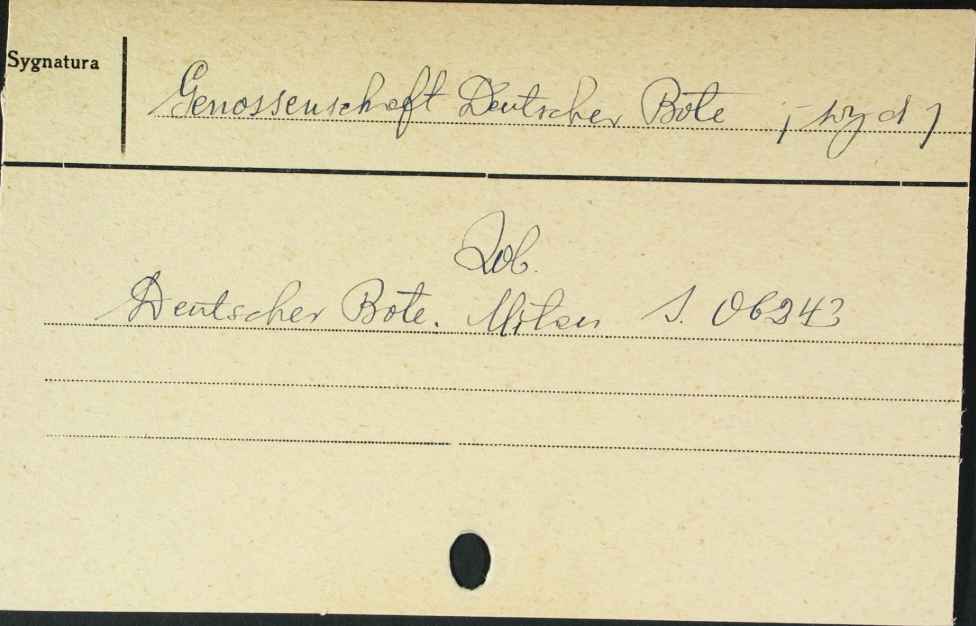 Sygnatura
Genossenschaft Deutscher Bote ; wyd ;
Zob.
Deutscher Bote. S. 06243